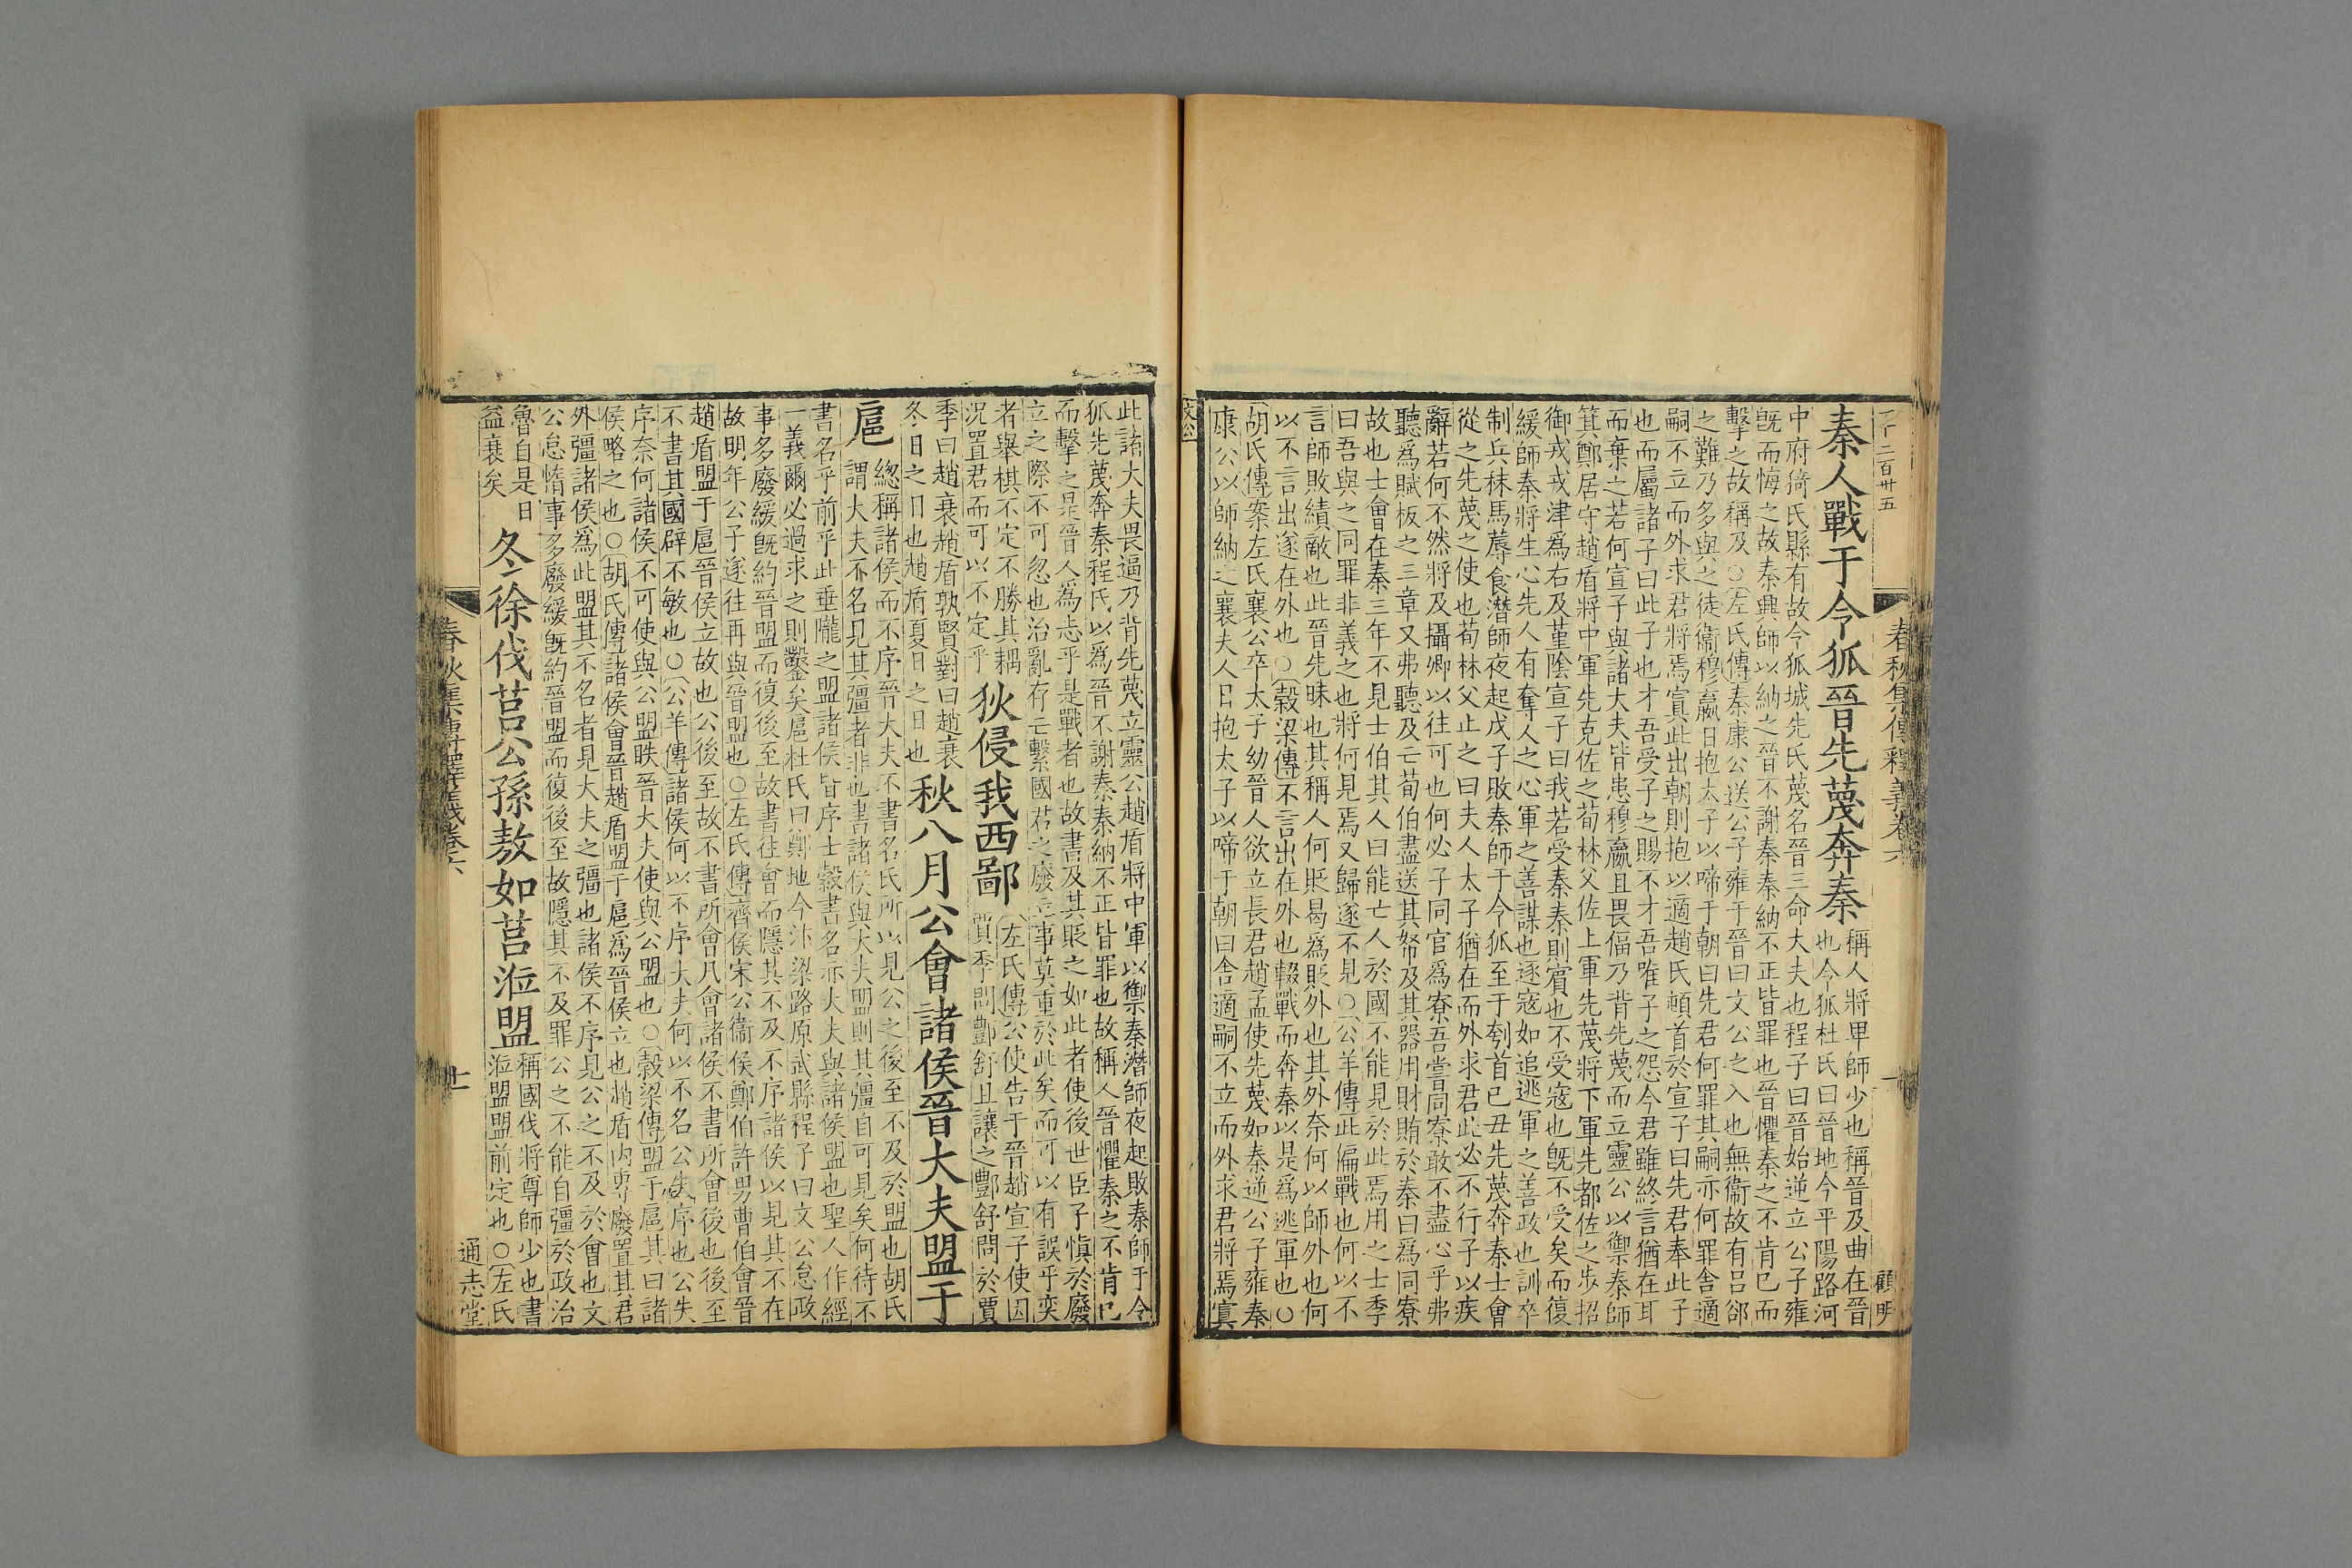 春秋集傳釋義卷六
顧明
秦人戰于令狐晉先蔑奔秦
稱人將卑師少也稱晉及曲在晉
也令狐杜氏曰晉地今平陽路河
中府猗氏縣有故令狐城先氏蔑名晉三命大夫也程子曰晉始逆立公子雍
旣而悔之故秦興師以納之晉不謝秦秦納不正皆罪也晉懼秦之不肯已而
擊之故稱及○左氏傳秦康公送公子雍于晉曰文公之入也無衞故有呂郤
之難乃多與之徒衞穆嬴日抱太子以啼于朝曰先君何罪其嗣亦何罪舍適
嗣不立而外求君將焉寘此出朝則抱以適趙氏頓首於宣子曰先君奉此子
也而屬諸子曰此子也才吾受子之賜不才吾唯子之怨今君雖終言猶在耳
而棄之若何宣子與諸大夫皆患穆嬴且畏偪乃背先蔑而立靈公以禦秦師
箕鄭居守趙盾將中軍先克佐之荀林父佐上軍先蔑將下軍先都佐之步招
御戎戎津爲右及堇陰宣子曰我若受秦秦則賓也不受寇也旣不受矣而復
緩師秦將生心先人有奪人之心軍之善謀也逐寇如追逃軍之善政也訓卒
制兵秣馬蓐食潛師夜起戊子敗秦師于令狐至于刳首已丑先蔑奔秦士會
從之先蔑之使也荀林父止之曰夫人太子猶在而外求君此必不行子以疾
辭若何不然將及攝卿以往可也何必子同官爲寮吾嘗同寮敢不盡心乎弗
聽爲賦板之三章又弗聽及亡荀伯盡送其帑及其器用財賄於秦曰爲同寮
故也士會在秦三年不見士伯其人曰能亡人於國不能見於此焉用之士季
曰吾與之同罪非義之也將何見焉又歸遂不見○公羊傳此偏戰也何以不
言師敗績敵也此晉先昧也其稱人何貶曷爲貶外也其外奈何以師外也何
以不言出遂在外也○穀梁傳不言出在外也輟戰而奔秦以是爲逃軍也○
胡氏傳案左氏襄公卒太子幼晉人欲立長君趙孟使先蔑如秦逆公子雍秦
康公以師納之襄夫人日抱太子以啼于朝曰舍適嗣不立而外求君將焉寘
此諸大夫畏逼乃背先蔑立靈公趙盾將中軍以禦秦潛師夜起敗秦師于令
狐先蔑奔秦程氏以爲晉不謝秦秦納不正皆罪也故稱人晉懼秦之不肯已
而擊之是晉人爲志乎是戰者也故書及其貶之如此者使後世臣子愼於廢
立之際不可忽也治亂存亡繫國君之廢立事莫重於此矣而可以有誤乎奕
者舉棋不定不勝其耦
況置君而可以不定乎
狄侵我西鄙
左氏傳公使告于晉趙宣子使因
賈季問酆舒且讓之酆舒問於賈
季曰趙衰趙盾孰賢對曰趙衰
冬日之日也趙盾夏日之日也
秋八月公會諸侯晉大夫盟于
扈
緫稱諸侯而不序晉大夫不書名氏所以見公之後至不及於盟也胡氏
謂大夫不名見其彊者非也書諸侯與大夫盟則其彊自可見矣何待不
書名乎前乎此垂隴之盟諸侯皆序士縠書名亦大夫與諸侯盟也聖人作經
一義爾必過求之則鑿矣扈杜氏曰鄭地今汴梁路原武縣程子曰文公怠政
事多廢緩旣約晉盟而復後至故書往會而隱其不及不序諸侯以見其不在
故明年公子遂往再與晉盟也○左氏傳齊侯宋公衞侯鄭伯許男曹伯會晉
趙盾盟于扈晉侯立故也公後至故不書所會凡會諸侯不書所會後也後至
不書其國辟不敏也○公羊傳諸侯何以不序大夫何以不名公失序也公失
序奈何諸侯不可使與公盟眣晉大夫使與公盟也○穀梁傳盟于扈其曰諸
侯略之也○胡氏傳諸侯會晉趙盾盟于扈爲晉侯立也趙盾內專廢置其君
外彊諸侯爲此盟其不名者見大夫之彊也諸侯不序見公之不及於會也文
公怠惰事多廢緩旣約晉盟而復後至故隱其不及罪公之不能自彊於政治
魯自是日
益衰矣
冬徐伐莒公孫敖如莒涖盟
稱國伐將尊師少也書
涖盟盟前定也○左氏
春秋集傳釋義卷六
十一
通志堂